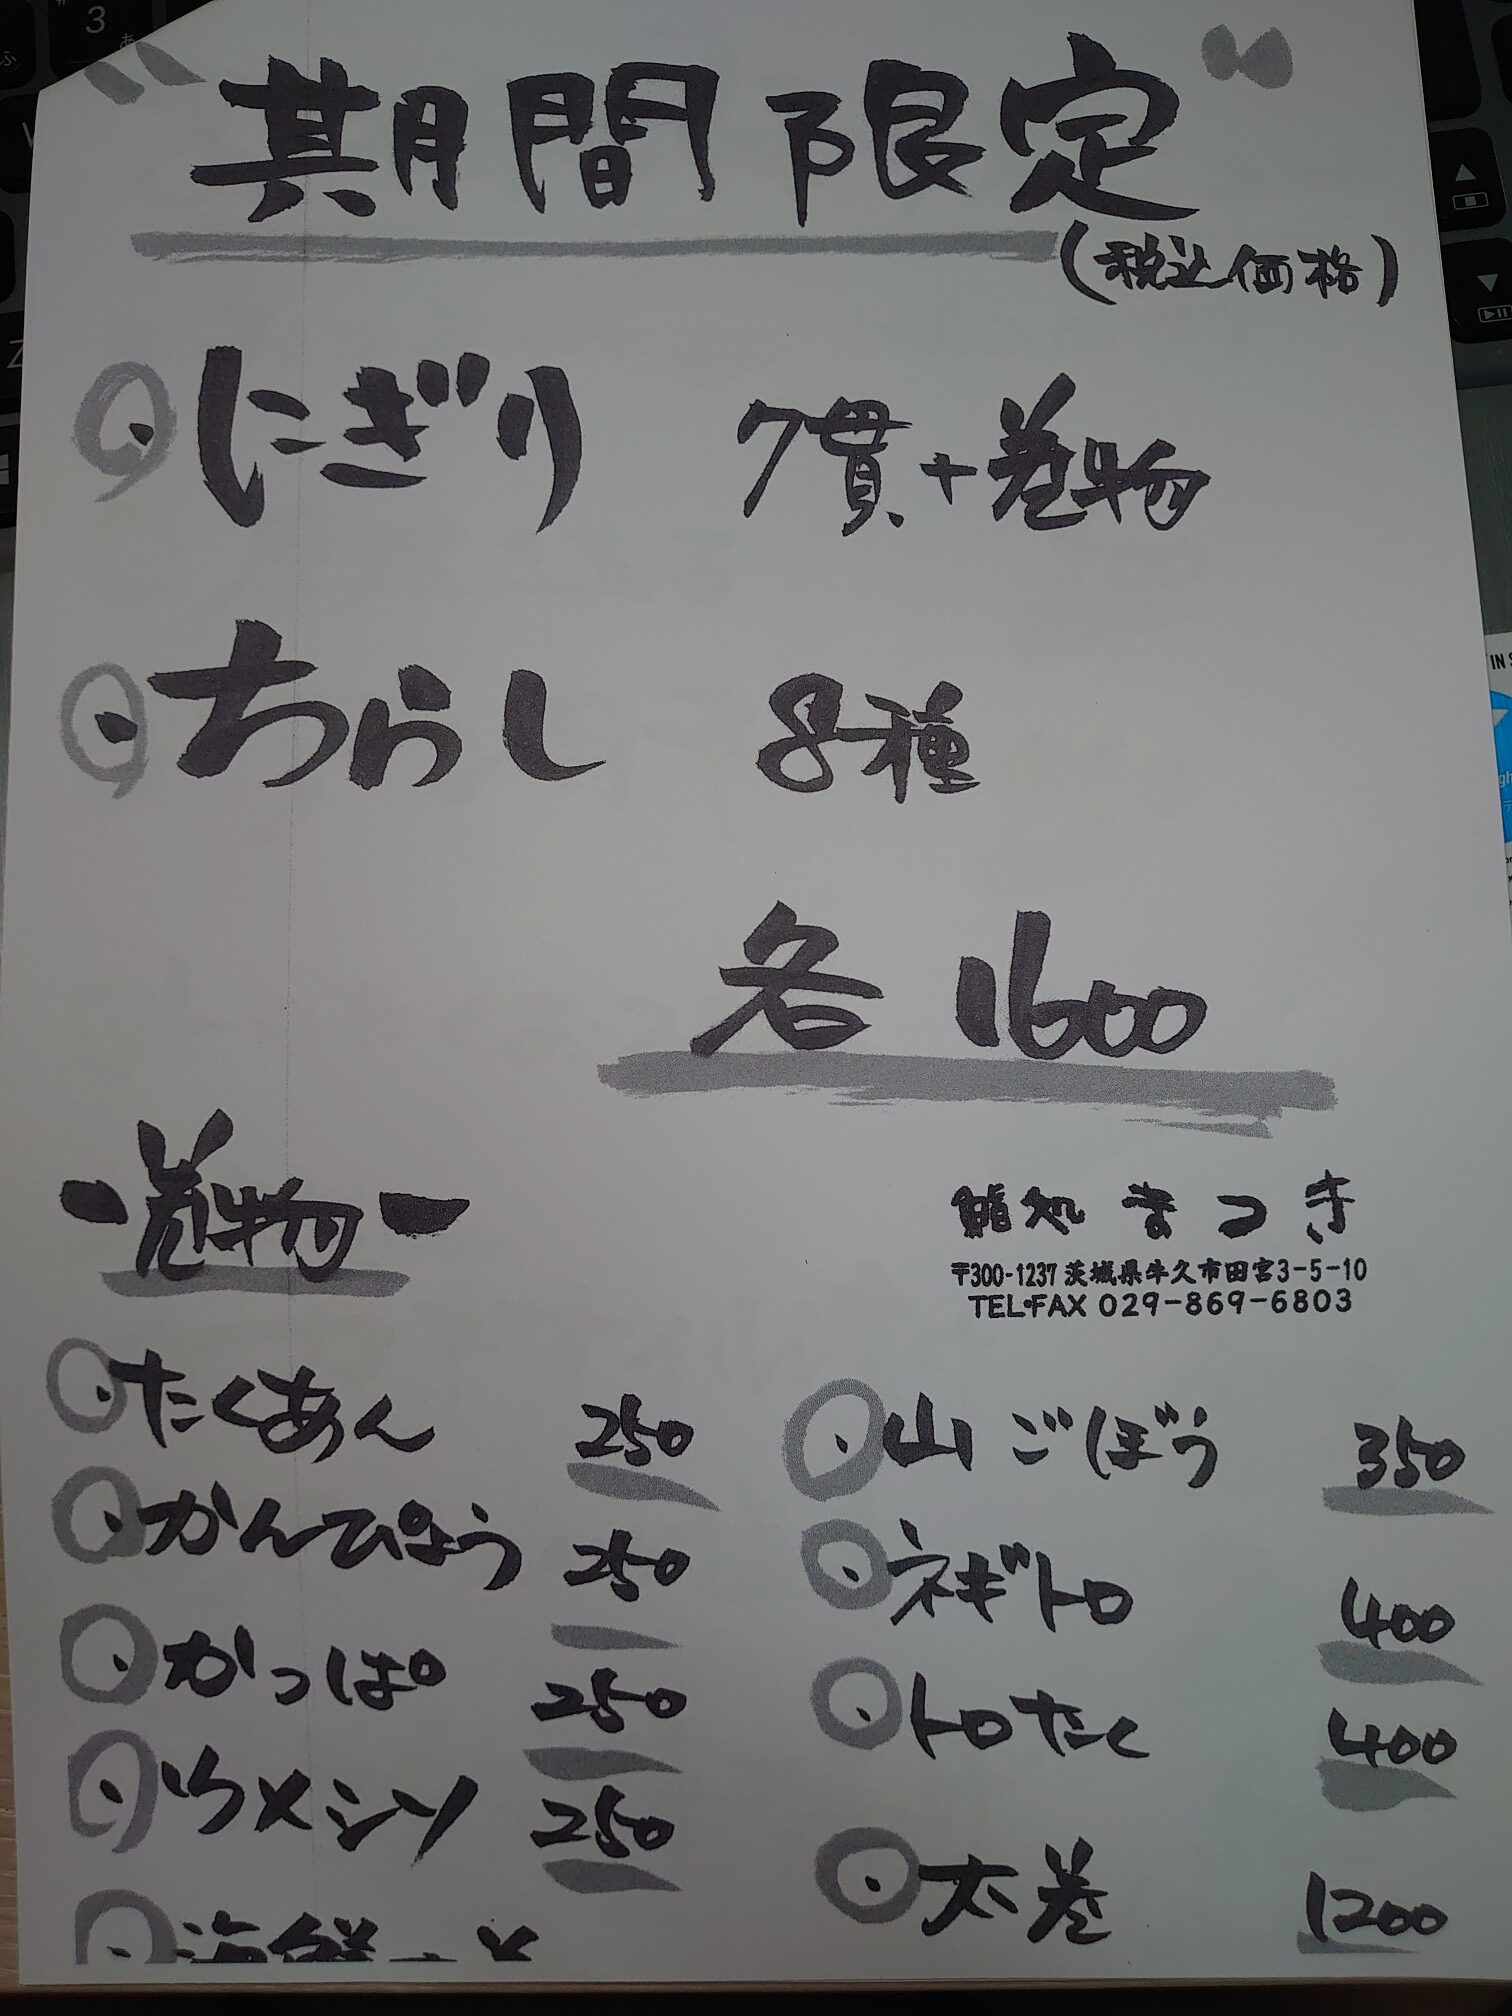 期間限定
(税込価格)
・にぎり 7貫+巻物
・ちらし 8種
各 1600
-巻物-
鮨処 まつき
〒300-1237 茨城県牛久市田宮3-5-10
TEL・FAX 029-869-6803
・たくあん 250
・かんぴょう 250
・かっぱ 250
・ウメシソ 250
・山ごぼう 350
・ネギトロ 400
・トロたく 400
・太巻 1200